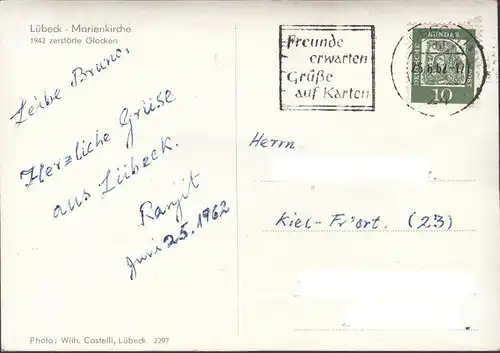 Lübeck - Marienkirche
1942 zerstörte Glocken
Leibe Bruno,
Herzliche Grüse
aus Lübeck.
Ranjit
Juni 25. 1962
Photo: Wilh. Castelli, Lübeck 2297
Freunde
erwarten
Grüße
auf Karten
DEUTSCHE BUNDESPOST
10
Herrn
Kiel-Fr'ort. (23)